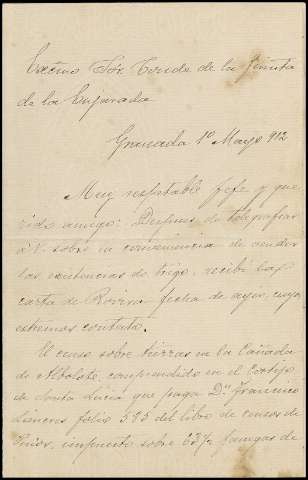 Excmo Sór Conde de la
de la Enjarada
Granada 1º Mayo 912
Muy respetable Jefe y que
rido amigo: Despues de telegrafiar
á V. sobre la conveniencia de vender
las existencias de trigo, recibí hoy
carta de Rovira fecha de ayer, cuyos
extremos contesto.
El censo sobre tierras en la Cañada
de Albolote, comprendido en el Cortijo
de Santa Lucia que paga Dn Francisco
folio 595 del libro de censos de
Pinos, impuesto sobre 63 1/2 fanegas de